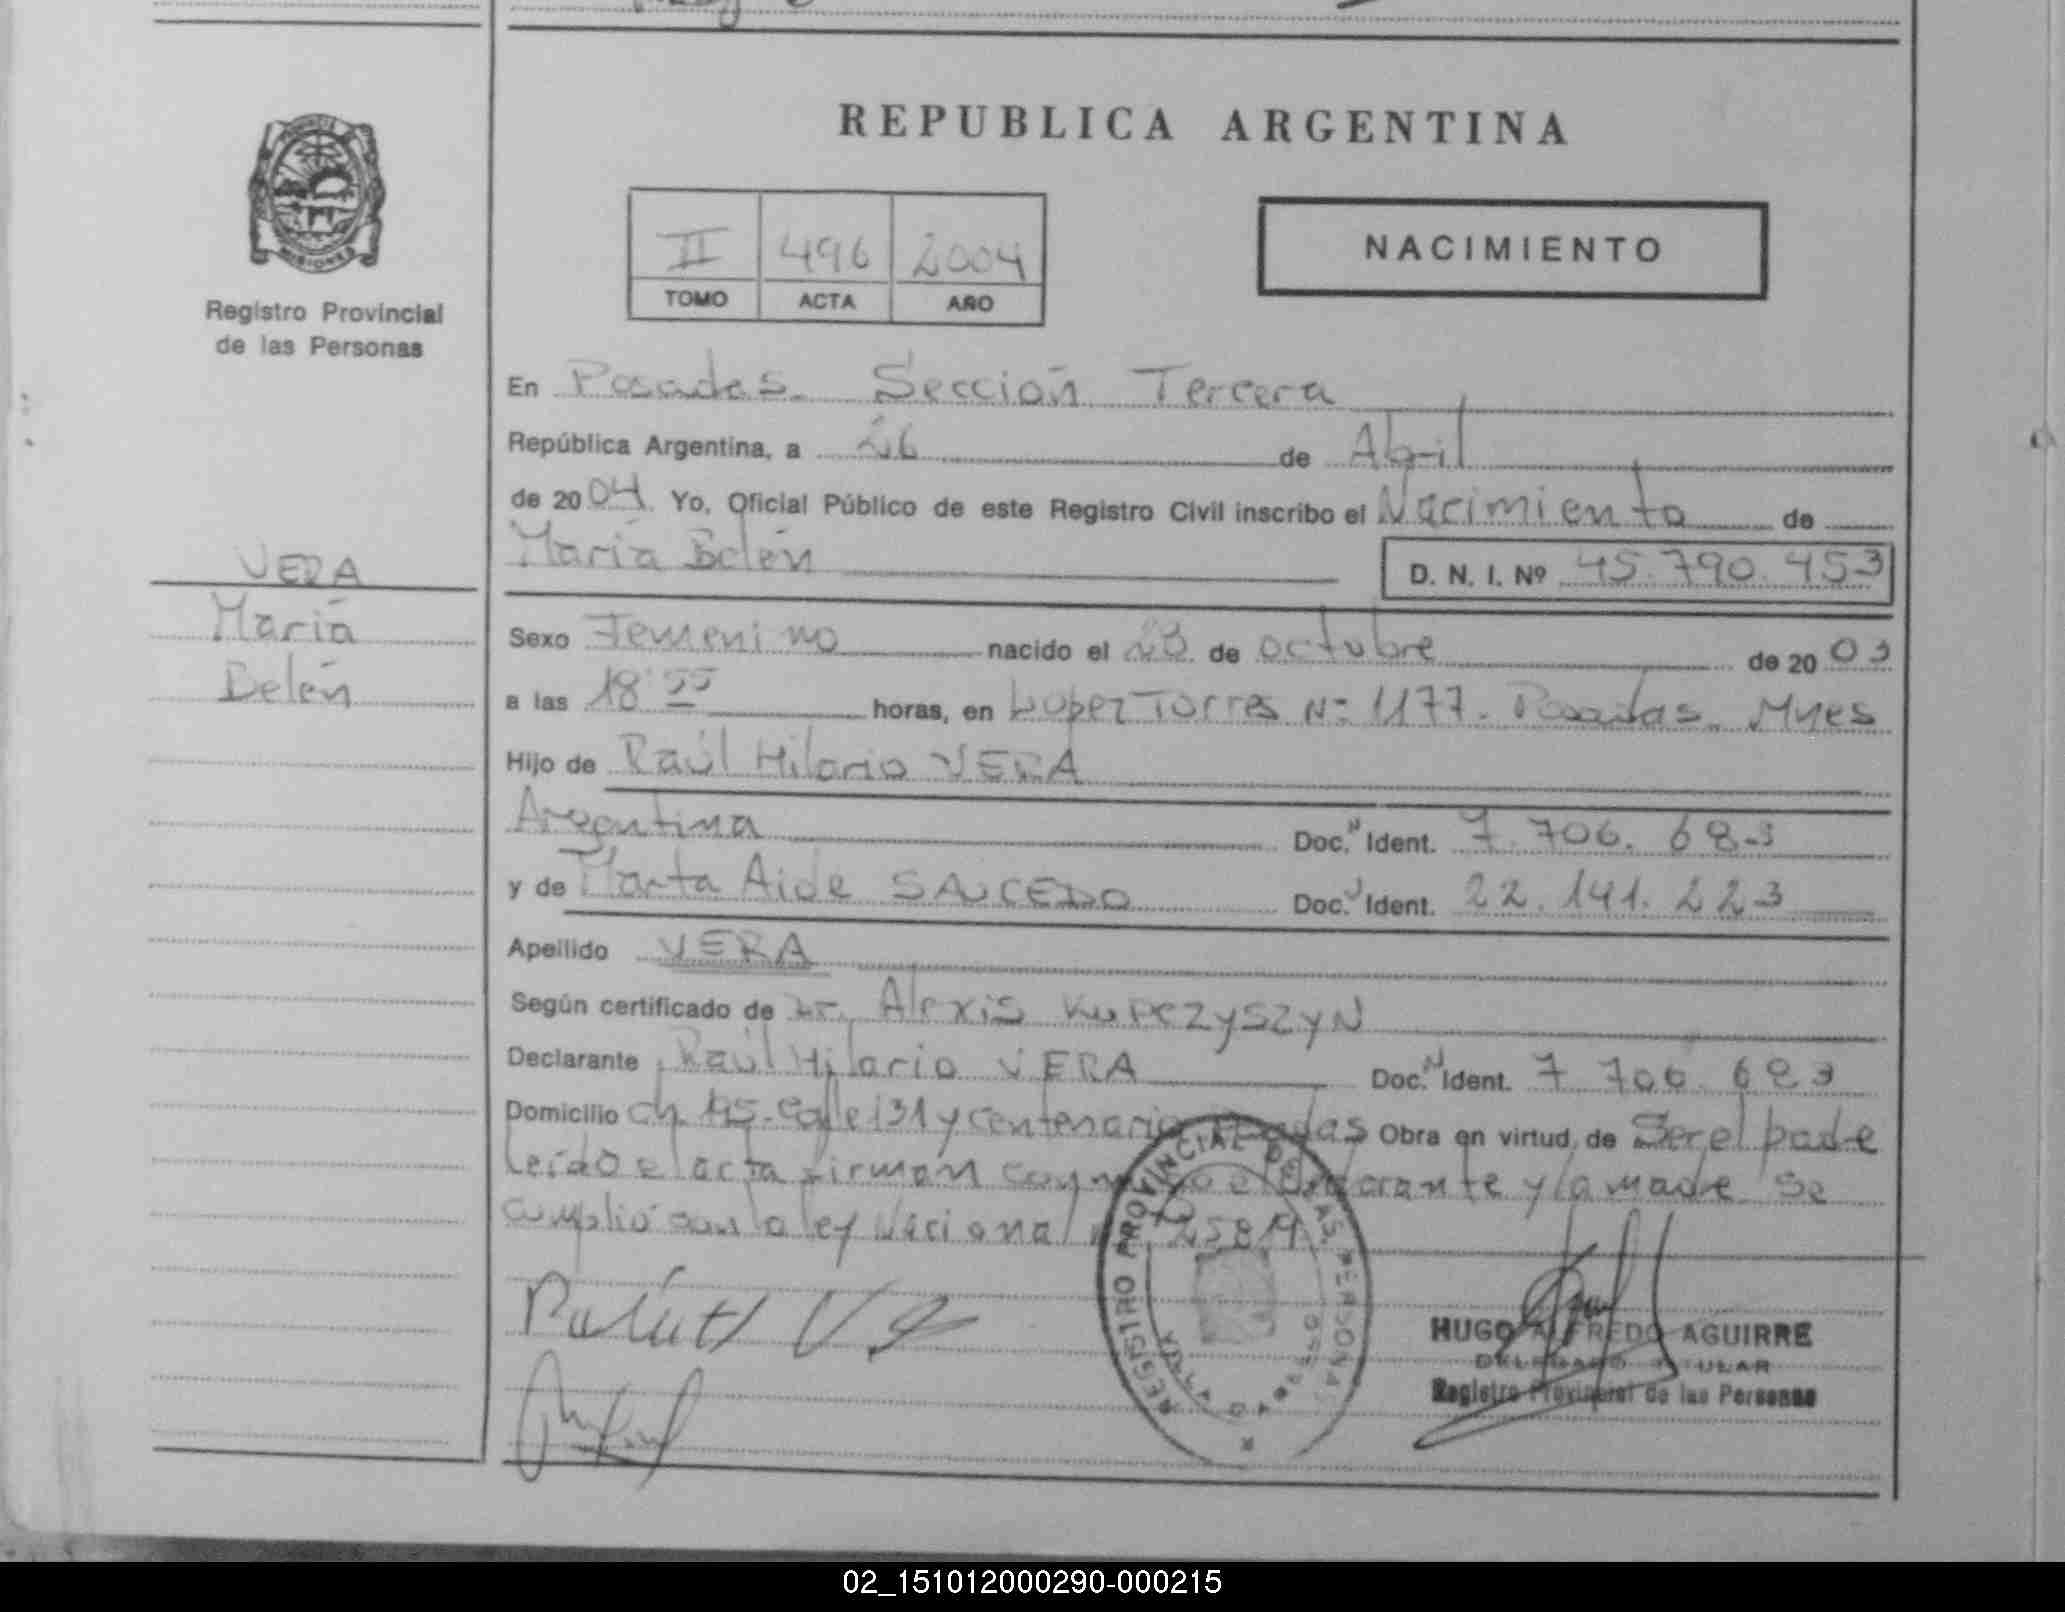 REPUBLICA ARGENTINA
NACIMIENTO
II 496 2004
TOMO ACTA AÑO
MISIONES
Registro Provincial
de las Personas
VERA
María
Belén
En Posadas. Sección Tercera
República Argentina, a 26 de Abril
de 2004. Yo, Oficial Público de este Registro Civil inscribo el Nacimiento de
María Belén D. N. I. Nº 45.790.453
Sexo Femenino nacido el 23 de octubre de 2003
a las 18:55 horas, en Lopez Torres Nº 1177. Posadas. Mnes
Hijo de Raúl Hilario VERA
Argentina Doc. Ident. 7.706.683
y de Marta Aide SALCEDO Doc. Ident. 22.141.223
Apellido VERA
Según certificado de Dr. Alexis KupczyszyN
Declarante Raúl Hilario VERA Doc. Ident. 7.706.683
Domicilio ch. 145-calle 131 y centenario Obra en virtud de Ser el padre
leído el acta firman conmigo el declarante y la madre Se
cumplió con la ley Nacional 25819
REGISTRO PROVINCIAL DE LAS PERSONAS
HUGO ALFREDO AGUIRRE
DELEGADO TITULAR
Registro Provincial de las Personas
02_151012000290-000215